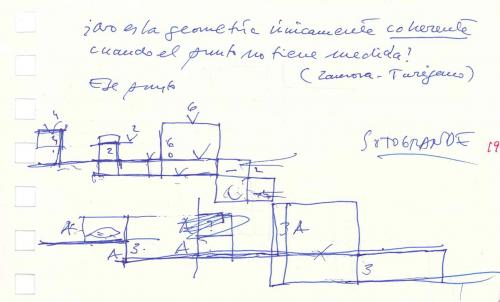 ¿No es la geometría únicamente coherente
cuando el punto no tiene medida?
(Zamora - Turégano)
Ese punto
SOTOGRANDE
19
4
2
6
2
6
2
A
3
A
A
3 A
3